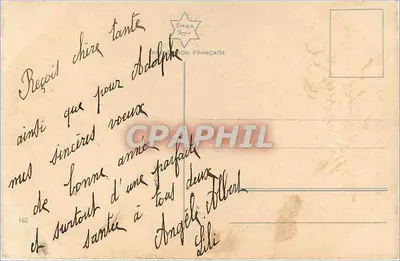 Reçois chère tante
ainsi que pour Adolphe
mes sincères voeux
de bonne année
et surtout d'une parfaite
santée à tous deux
Angèle. Albert
Lili
ION FRANÇAISE
CPAPHIL
162